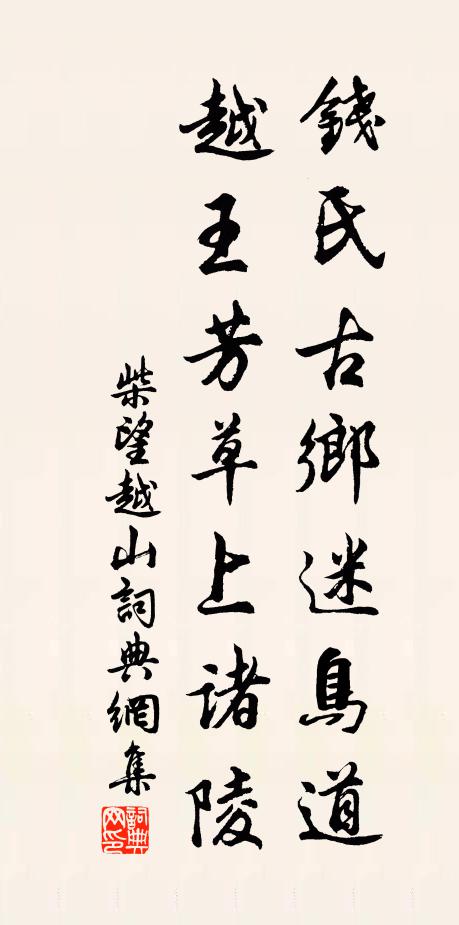 錢氏古鄉迷鳥道
越王芳草上诸陵
柴望越山詞典網集
詞典網印